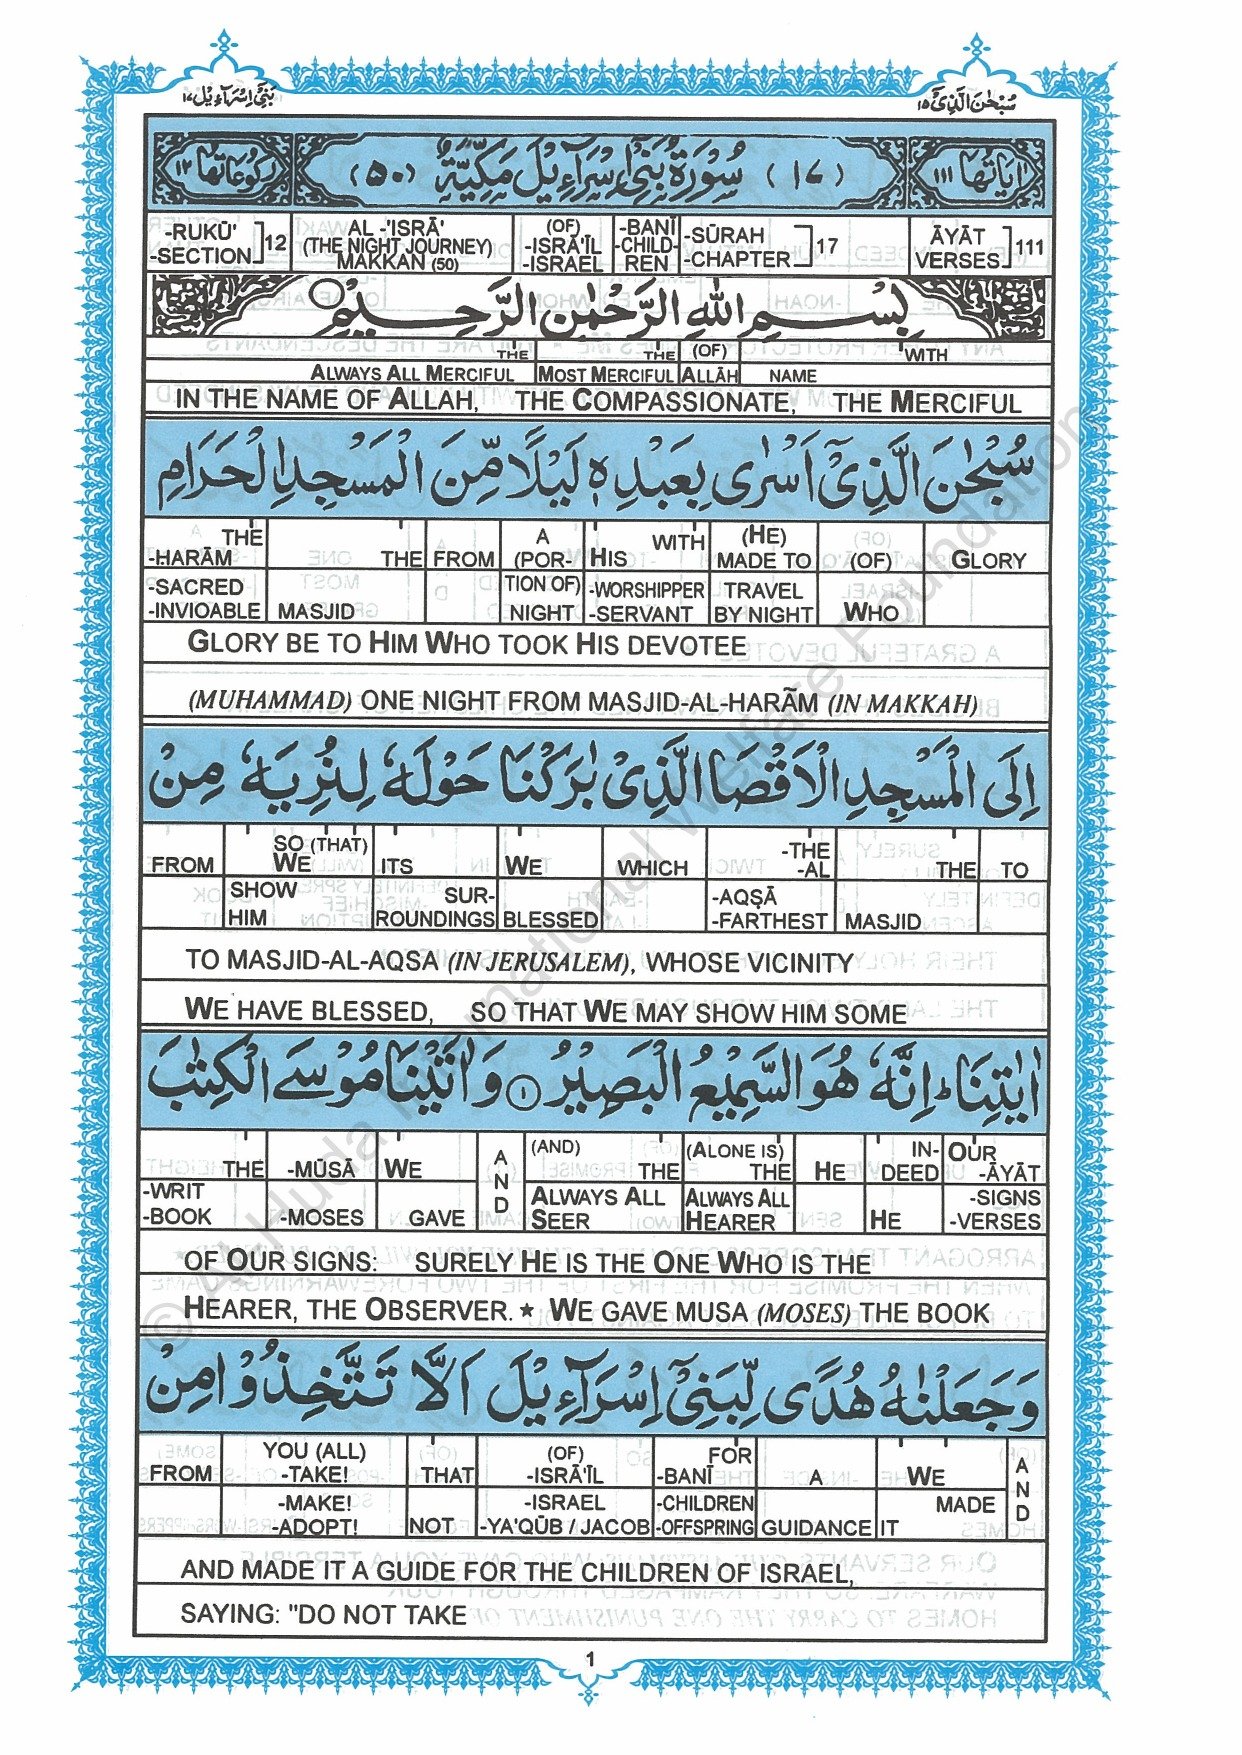 بَنِيْٓ اِسْرَآءِيْل ١٧ سُبْحٰنَ الَّذِيْٓ ١٥
اٰيَاتُهَا ١١١ (١٧) سُوْرَةُ بَنِيْٓ اِسْرَآءِيْلَ مَكِّيَّةٌ (٥٠) رُكُوْعَاتُهَا ١٢
-RUKŪ' -SECTION] 12 AL -'ISRĀ' (THE NIGHT JOURNEY) MAKKAN (50) (OF) -ISRĀ'ĪL -ISRAEL -BANĪ -CHILD- REN -SŪRAH -CHAPTER] 17 ĀYĀT VERSES] 111
بِسْمِ اللّٰهِ الرَّحْمٰنِ الرَّحِيْمِ
THE THE (OF) WITH
ALWAYS ALL MERCIFUL MOST MERCIFUL ALLĀH NAME
IN THE NAME OF ALLAH, THE COMPASSIONATE, THE MERCIFUL
سُبْحٰنَ الَّذِيْٓ اَسْرٰى بِعَبْدِهٖ لَيْلًا مِّنَ الْمَسْجِدِ الْحَرَامِ
THE -HARĀM THE FROM A (POR- HIS WITH (HE) MADE TO (OF) GLORY
-SACRED -INVIOABLE MASJID TION OF) NIGHT -WORSHIPPER -SERVANT TRAVEL BY NIGHT WHO
GLORY BE TO HIM WHO TOOK HIS DEVOTEE
(MUHAMMAD) ONE NIGHT FROM MASJID-AL-HARĀM (IN MAKKAH)
اِلَى الْمَسْجِدِ الْاَقْصَا الَّذِيْ بٰرَكْنَا حَوْلَهٗ لِنُرِيَهٗ مِنْ
FROM SO (THAT) WE ITS WE WHICH -THE -AL THE TO
SHOW HIM SUR- ROUNDINGS BLESSED -AQṢĀ -FARTHEST MASJID
TO MASJID-AL-AQSA (IN JERUSALEM), WHOSE VICINITY
WE HAVE BLESSED, SO THAT WE MAY SHOW HIM SOME
اٰيٰتِنَا ؕ اِنَّهٗ هُوَ السَّمِيْعُ الْبَصِيْرُ ١ وَاٰتَيْنَا مُوْسَى الْكِتٰبَ
THE -MŪSĀ WE AND (AND) THE (ALONE IS) THE HE IN- DEED OUR -ĀYĀT
-WRIT -BOOK -MOSES GAVE ALWAYS ALL SEER ALWAYS ALL HEARER HE -SIGNS -VERSES
OF OUR SIGNS: SURELY HE IS THE ONE WHO IS THE
HEARER, THE OBSERVER. ★ WE GAVE MUSA (MOSES) THE BOOK
وَجَعَلْنٰهُ هُدًى لِّبَنِيْٓ اِسْرَآءِيْلَ اَلَّا تَتَّخِذُوْا مِنْ
FROM YOU (ALL) -TAKE! THAT (OF) -ISRĀ'ĪL FOR -BANĪ A WE AND
-MAKE! -ADOPT! NOT -ISRAEL -YA'QŪB / JACOB -CHILDREN -OFFSPRING GUIDANCE IT MADE
AND MADE IT A GUIDE FOR THE CHILDREN OF ISRAEL,
SAYING: "DO NOT TAKE
1
© Al Huda International Welfare Foundation